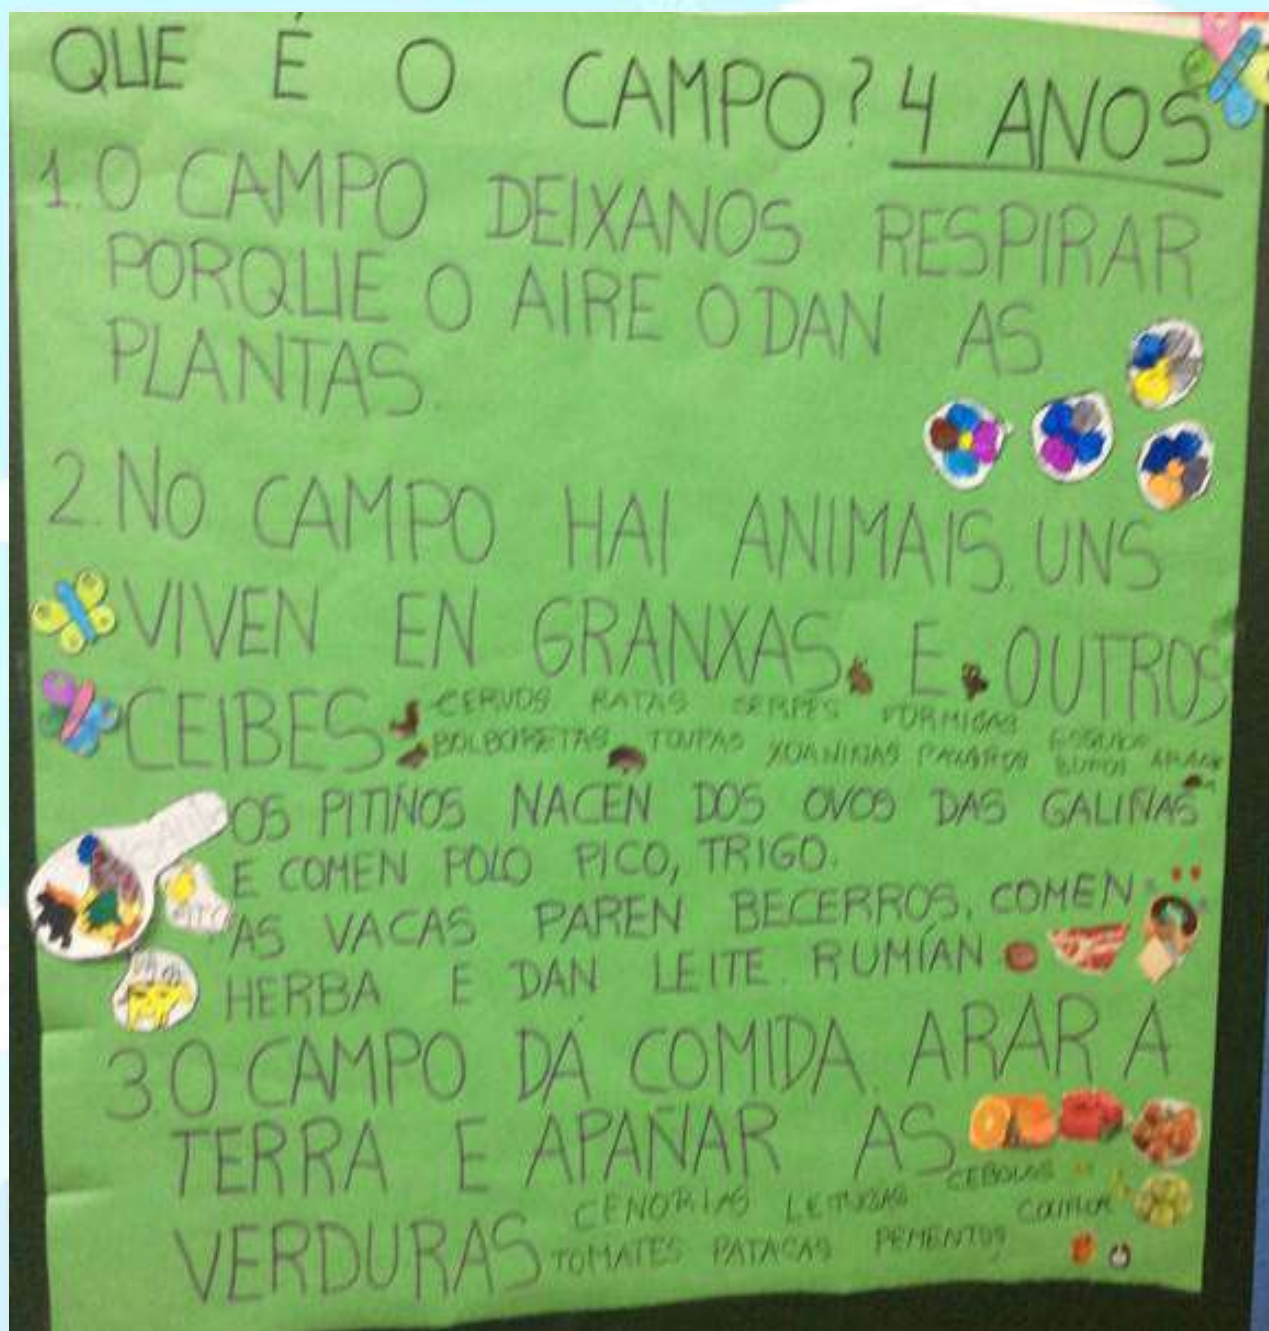 QUE É O CAMPO? 4 ANOS
1. O CAMPO DEIXANOS RESPIRAR
PORQUE O AIRE O DAN AS
PLANTAS.
2. NO CAMPO HAI ANIMAIS. UNS
VIVEN EN GRANXAS E OUTROS
CEIBES
CERVOS RATAS SERPES FORMIGAS
BOLBORETAS TOUPAS XOANIÑAS PAXAROS
OS PITIÑOS NACEN DOS OVOS DAS GALIÑAS
E COMEN POLO PICO, TRIGO.
AS VACAS PAREN BECERROS, COMEN
HERBA E DAN LEITE. RUMÍAN
3 O CAMPO DÁ COMIDA. ARAR A
TERRA E APAÑAR AS
VERDURAS
CENORIAS LEITUGAS CEBOLAS
TOMATES PATACAS PEMENTOS